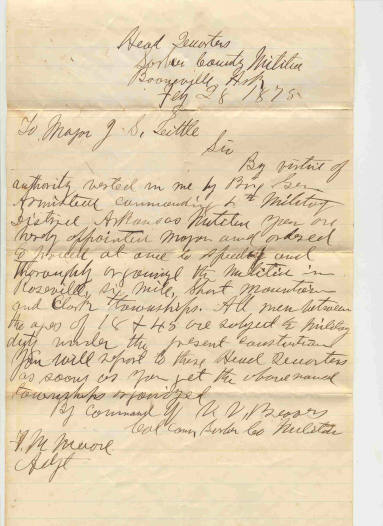 Head Quorters
County Militia
Booneville, Ark
Feb 28 1875
To Major J. S. Little
Sir
By virtue of
authority vested in me by Brig Gen
Armistead commanding 4th Military
District Arkansas Militia you are
hereby appointed Major and ordered
to proceed at once to speedily and
thoroughly organize the Militia in
Roseville, Six Mile, Short Mountain
and Clark townships. All men between
the ages of 18 & 45 are subject to Military
duty under the present constitution
You will report to these Head Quorters
as soon as you get the above named
townships organized
By Command of
Col Comg Co Militia
Moore
Adjt